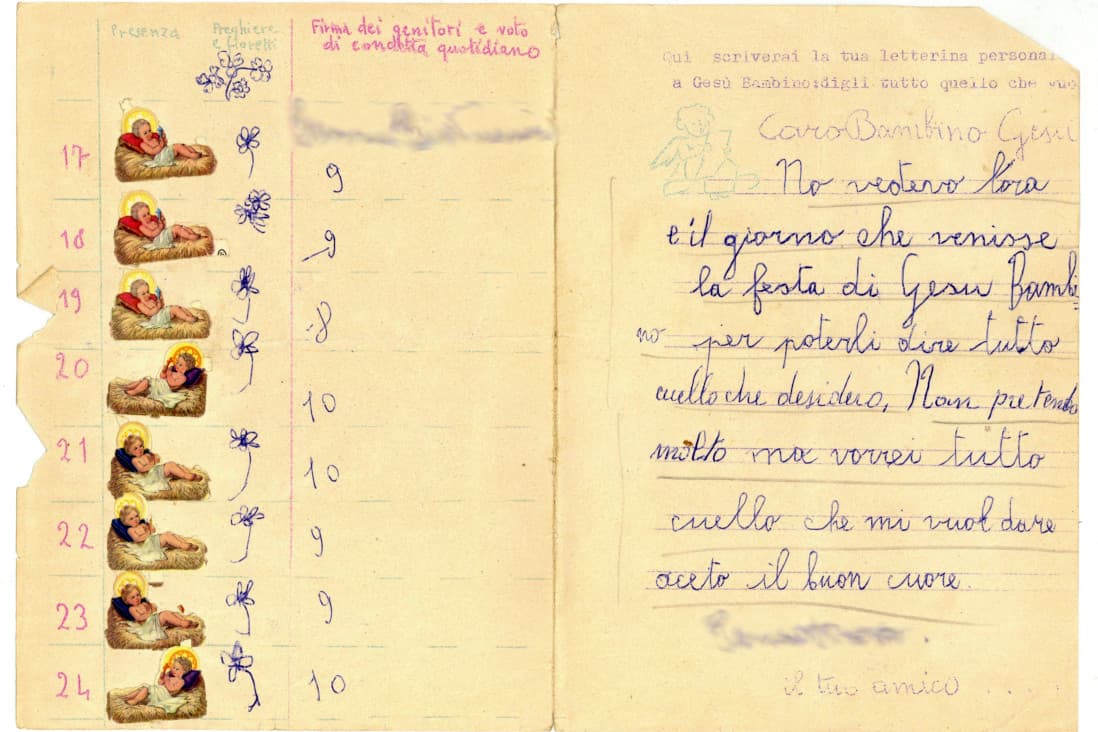 Presenza
Preghiere
e fioretti
Firma dei genitori e voto
di condotta quotidiano
17 9
18 -9
19 -8
20 10
21 10
22 9
23 9
24 10
Qui scriverai la tua letterina personal
a Gesù Bambino:digli tutto quello che vuo
Caro Bambino Gesu
No vedevo l'ora
e il giorno che venisse
la festa di Gesu Bambi=
no per poterli dire tutto
cuello che desidero, Non pretendo
molto ma vorrei tutto
cuello che mi vuol dare
aceto il buon cuore.
il tuo amico . . . .